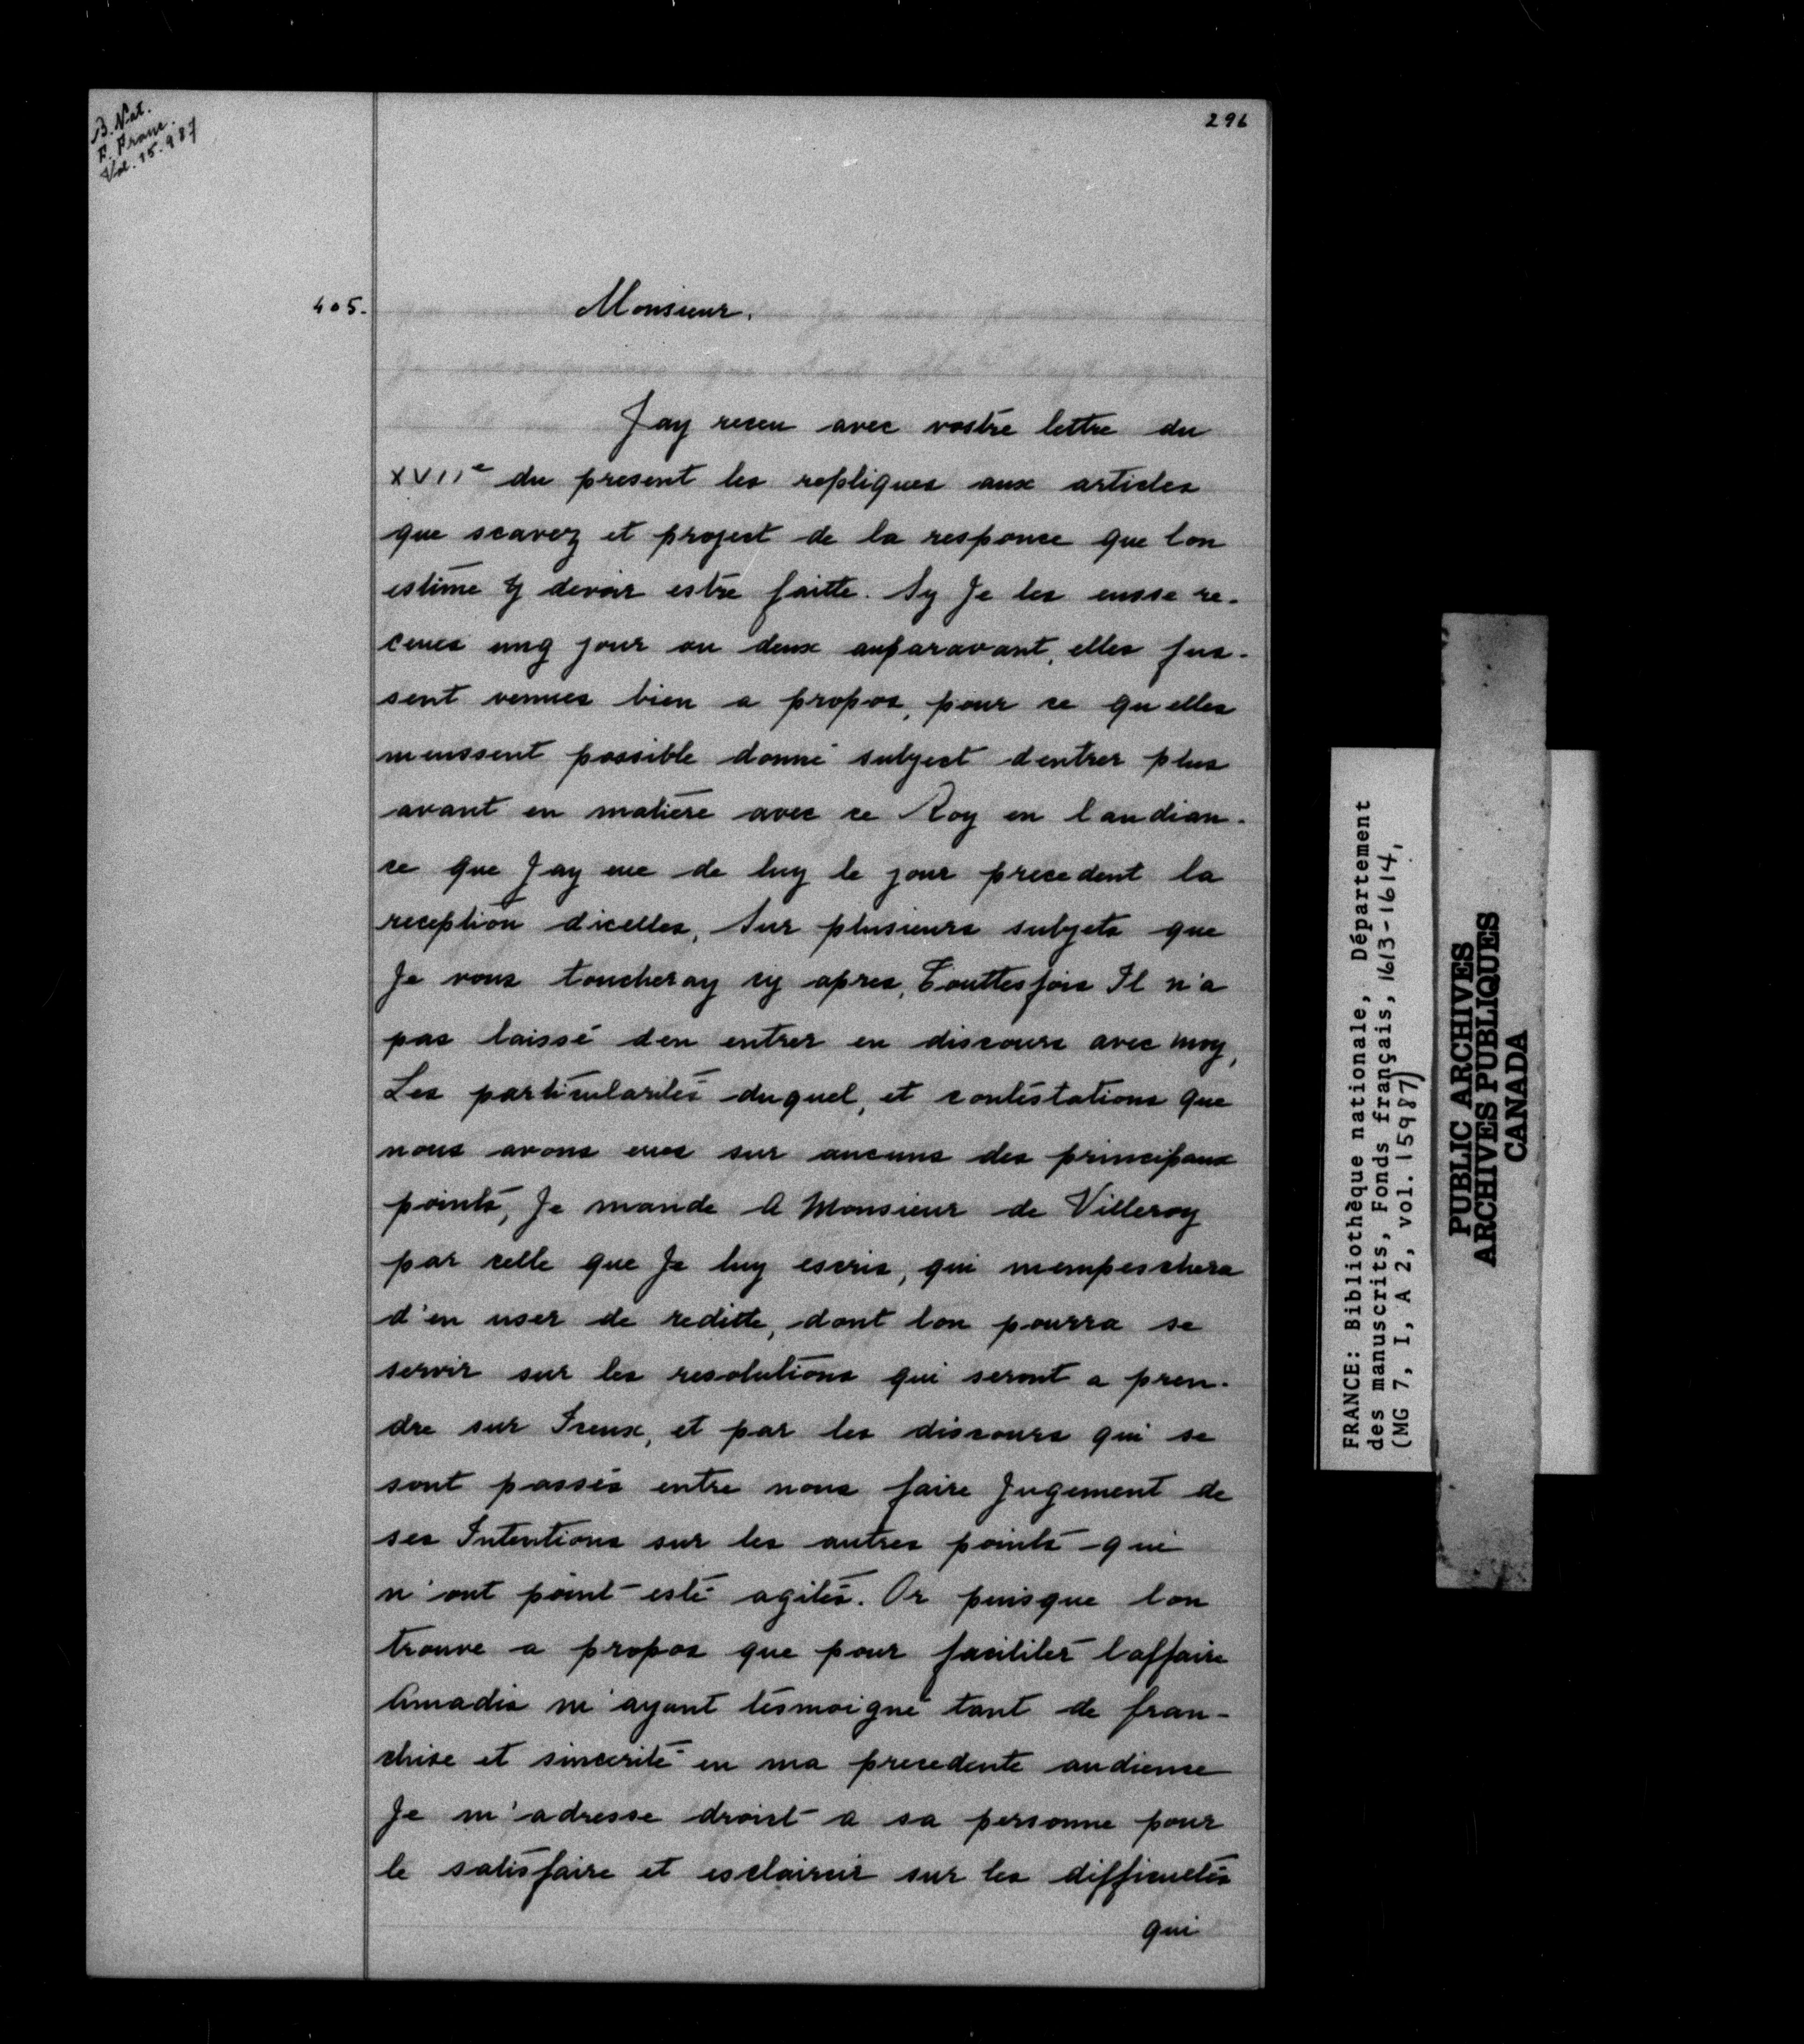 B. Nat.
F. Franc.
Vol. 15.987
296
405.
Monsieur.
Jay receu avec vostre lettre du
XVIIe du present les repliques aux articles
que scavez et project de la responce que lon
estime y devoir estre faitte. Sy Je les eusse re-
ceues ung jour ou deux auparavant, elles fus-
sent venues bien a propos, pour ce qu elles
meussent possible donné subject dentrer plus
avant en matiere avec ce Roy en l audian-
ce que Jay eue de luy le jour precedent la
reception dicelles, Sur plusieurs subjets que
Je vous toucheray cy apres, Touttesfois Il n'a
pas laissé den entrer en discours avec moy,
Les particularités duquel, et contestations que
nous avons eues sur aucuns des principaux
points, Je mande A Monsieur de Villeroy
par celle que Je luy escris, qui mempeschera
d'en user de reditte, dont lon pourra se
servir sur les resolutions qui seront a pren-
dre sur Iceux, et par les discours qui se
sont passés entre nous faire Jugement de
ses Intentions sur les autres points qui
n'ont point esté agités. Or puisque lon
trouve a propos que pour faciliter laffaire
Amadis m'ayant tesmoigné tant de fran-
chise et sincerité en ma precedente audience
Je m'adresse droict a sa personne pour
le satisfaire et esclaircir sur les difficultés
qui
FRANCE: Bibliothèque nationale, Département
des manuscrits, Fonds français, 1613-1614,
(MG 7, I, A 2, vol. 15987)
PUBLIC ARCHIVES
ARCHIVES PUBLIQUES
CANADA